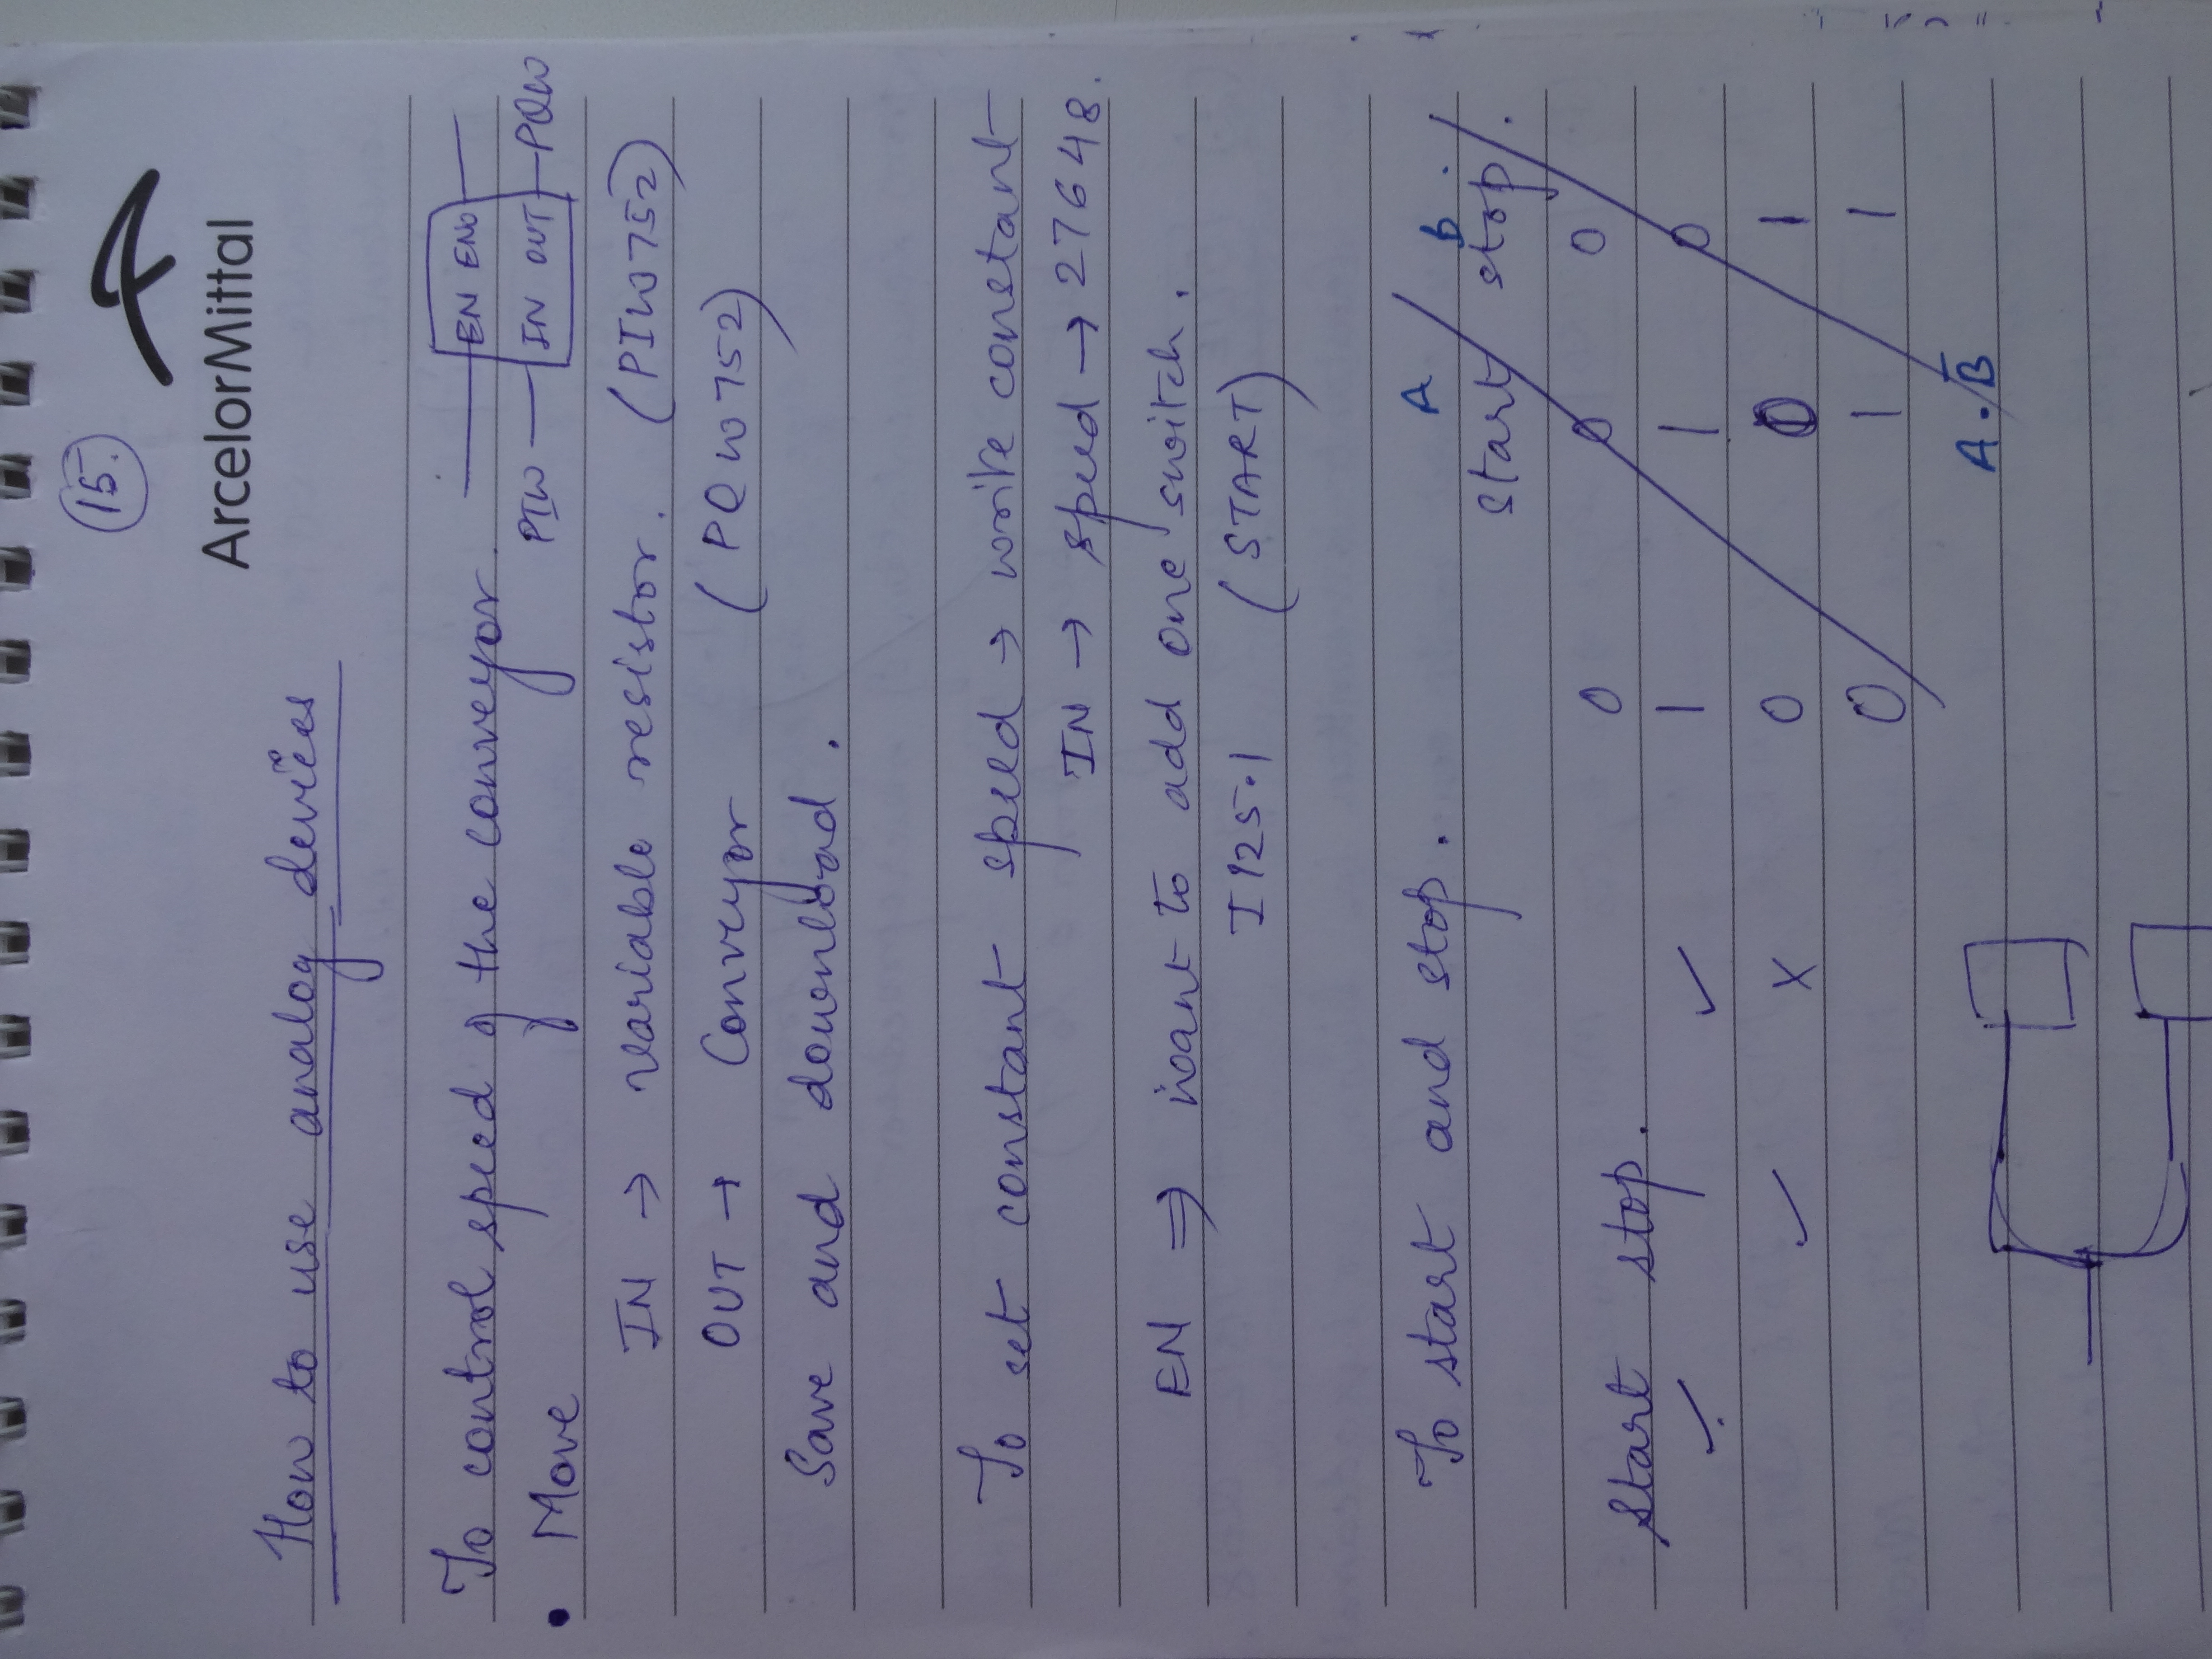 15.
ArcelorMittal
How to use analog devices
To control speed of the conveyor.
EN ENO
• Move
PIW IN OUT PQW
IN → variable resistor. (PIW752)
OUT → Conveyor (PQW752)
Save and download.
To set constant speed → write constant
IN → speed → 27648.
EN ⇒ want to add one switch.
I125.1 (START)
To start and stop.
A B
start stop.
0 0 0
Start stop.
✓ ✓ 1 1 0
✓ X 0 0 1
0 1 1
A.B̅